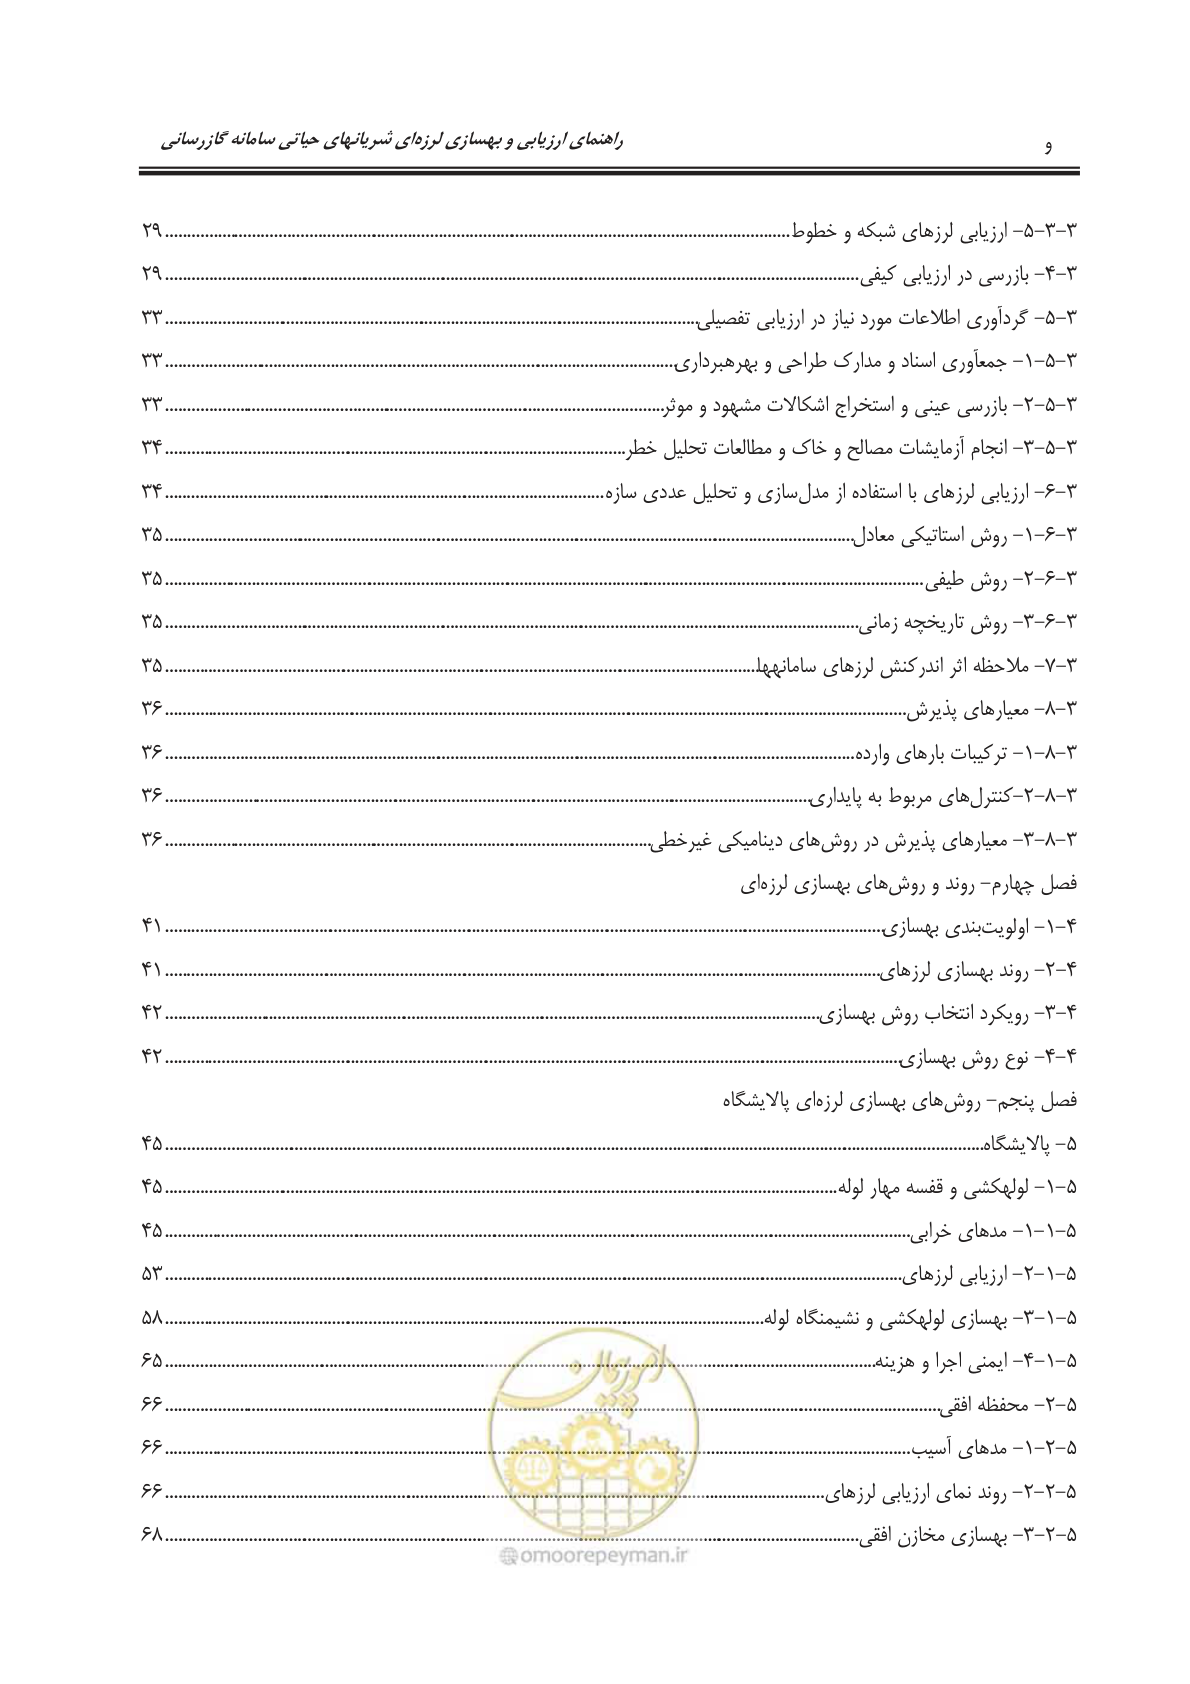 و
راهنمای ارزیابی و بهسازی لرزه‌ای شریانهای حیاتی سامانه گازرسانی
۳-۳-۵- ارزیابی لرزهای شبکه و خطوط ۲۹
۳-۴- بازرسی در ارزیابی کیفی ۲۹
۳-۵- گردآوری اطلاعات مورد نیاز در ارزیابی تفصیلی ۳۳
۳-۵-۱- جمعآوری اسناد و مدارک طراحی و بهرهبرداری ۳۳
۳-۵-۲- بازرسی عینی و استخراج اشکالات مشهود و موثر ۳۳
۳-۵-۳- انجام آزمایشات مصالح و خاک و مطالعات تحلیل خطر ۳۴
۳-۶- ارزیابی لرزهای با استفاده از مدل‌سازی و تحلیل عددی سازه ۳۴
۳-۶-۱- روش استاتیکی معادل ۳۵
۳-۶-۲- روش طیفی ۳۵
۳-۶-۳- روش تاریخچه زمانی ۳۵
۳-۷- ملاحظه اثر اندرکنش لرزهای سامانهها ۳۵
۳-۸- معیارهای پذیرش ۳۶
۳-۸-۱- ترکیبات بارهای وارده ۳۶
۳-۸-۲-کنترل‌های مربوط به پایداری ۳۶
۳-۸-۳- معیارهای پذیرش در روش‌های دینامیکی غیرخطی ۳۶
فصل چهارم- روند و روش‌های بهسازی لرزه‌ای
۴-۱- اولویت‌بندی بهسازی ۴۱
۴-۲- روند بهسازی لرزهای ۴۱
۴-۳- رویکرد انتخاب روش بهسازی ۴۲
۴-۴- نوع روش بهسازی ۴۲
فصل پنجم- روش‌های بهسازی لرزه‌ای پالایشگاه
۵- پالایشگاه ۴۵
۵-۱- لولهکشی و قفسه مهار لوله ۴۵
۵-۱-۱- مدهای خرابی ۴۵
۵-۱-۲- ارزیابی لرزهای ۵۳
۵-۱-۳- بهسازی لولهکشی و نشیمنگاه لوله ۵۸
۵-۱-۴- ایمنی اجرا و هزینه ۶۵
۵-۲- محفظه افقی ۶۶
۵-۲-۱- مدهای آسیب ۶۶
۵-۲-۲- روند نمای ارزیابی لرزهای ۶۶
۵-۲-۳- بهسازی مخازن افقی ۶۸
امور پیمان
@omoorepeyman.ir